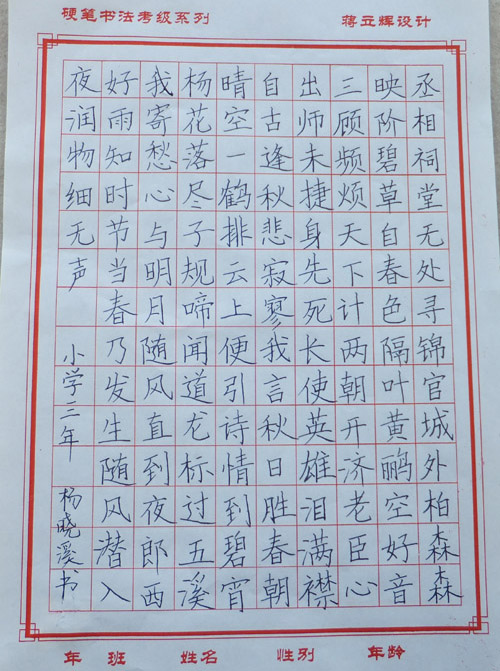 硬笔书法考级系列 蒋立辉设计
丞相祠堂无处寻锦官城外柏森森
映阶碧草自春色隔叶黄鹂空好音
三顾频烦天下计两朝开济老臣心
出师未捷身先死长使英雄泪满襟
自古逢秋悲寂寥我言秋日胜春朝
晴空一鹤排云上便引诗情到碧宵
杨花落尽子规啼闻道龙标过五溪
我寄愁心与明月随风直到夜郎西
好雨知时节当春乃发生随风潜入
夜润物细无声 小学二年 杨晓溪书
年 班 姓名 性别 年龄